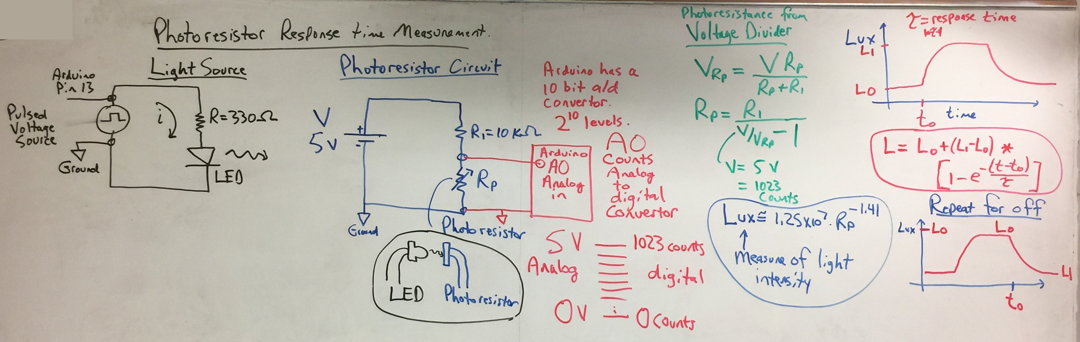 Photoresistor Response time Measurement.
Light Source
Arduino
Pin 13
Pulsed
Voltage
Source
i
R=330Ω
Ground
LED
Photoresistor Circuit
V
5V
+
-
R₁=10KΩ
Rp
Ground
Photoresistor
LED
Photoresistor
Arduino has a
10 bit a/d
convertor.
2¹⁰ levels.
Arduino
A0
Analog
in
A0
Counts
Analog
to
digital
Convertor
5V — 1023 counts
Analog
digital
0V — 0 counts
Photoresistance from
Voltage Divider
V_Rp = V Rp / (Rp+R₁)
Rp = R₁ / (V/V_Rp - 1)
V= 5V
= 1023
Counts
Lux ≅ 1.25x10⁷ · Rp^-1.41
Measure of light
intensity
τ = response time
Lux
L₁
L₀
t₀
time
L = L₀+(L₁-L₀) *
[1-e^-(t-t₀)/τ]
Repeat for off
Lux
L₀
L₀
L₁
t₀